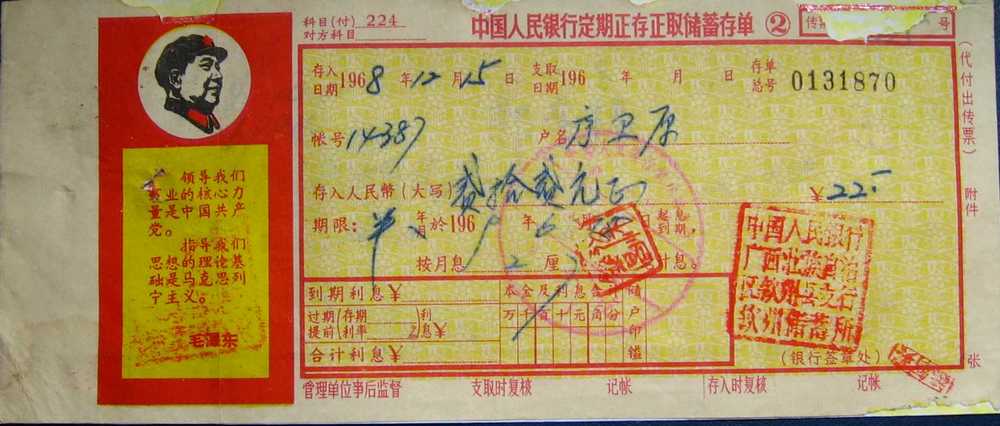 科目(付) 224
对方科目
中国人民银行定期正存正取储蓄存单 ②
号
存入日期 1968年12月15日 支取日期 196 年 月 日 存单总号 0131870
帐号 14387 户名
存入人民币(大写) 贰拾贰元正 ¥22
期限: 半年 於196 年 6 日起息到期,
按月息 2 厘 计息。
到期利息¥ 本金及利息合计
过期(存期)利
提前(利率)息¥
万千百十元角分
合计利息¥
户印鑑
(银行签章处)
管理单位事后监督 支取时复核 记帐 存入时复核 记帐
(代付出传票)
附件
张
领导我们
事业的核心力
量是中国共产
党。
指导我们
思想的理论基
础是马克思列
宁主义。
毛泽东
中国人民银行
广西壮族自治
区钦州县支行
钦州储蓄所